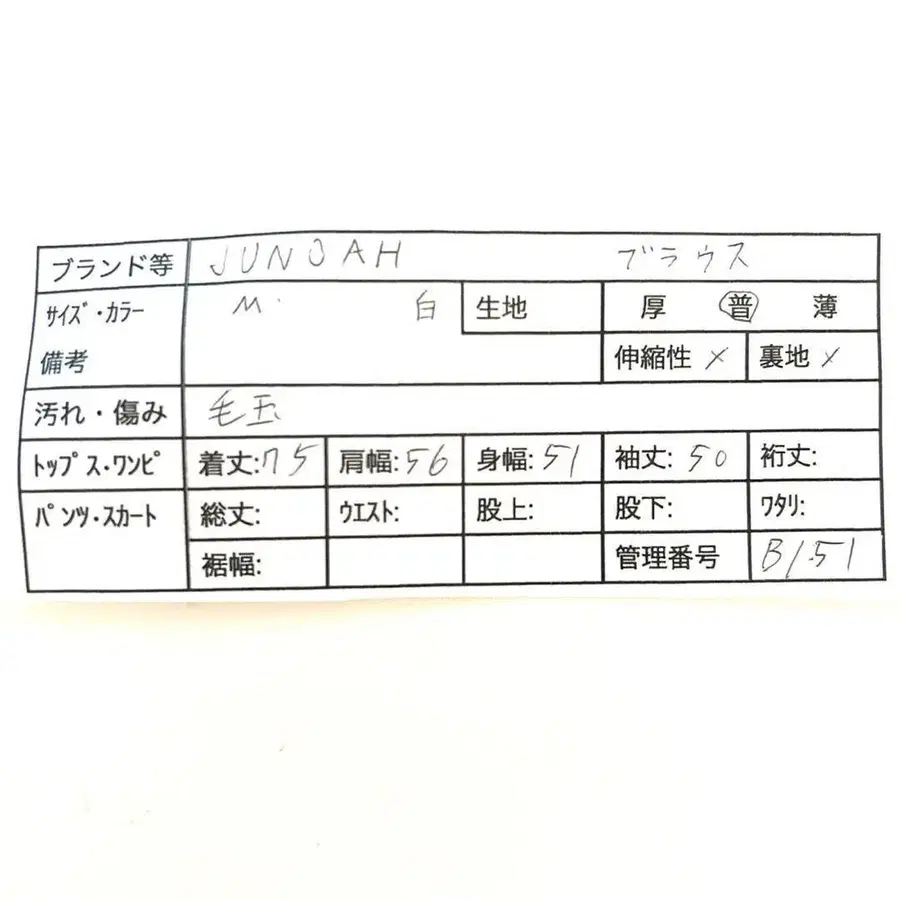 ブランド等 JUNOAH ブラウス
サイズ・カラー M. 白 生地 厚 普 薄
備考 伸縮性 × 裏地 ×
汚れ・傷み 毛玉
トップス・ワンピ 着丈:75 肩幅:56 身幅:51 袖丈:50 裄丈:
パンツ・スカート 総丈: ウエスト: 股上: 股下: ワタリ:
裾幅: 管理番号 B151